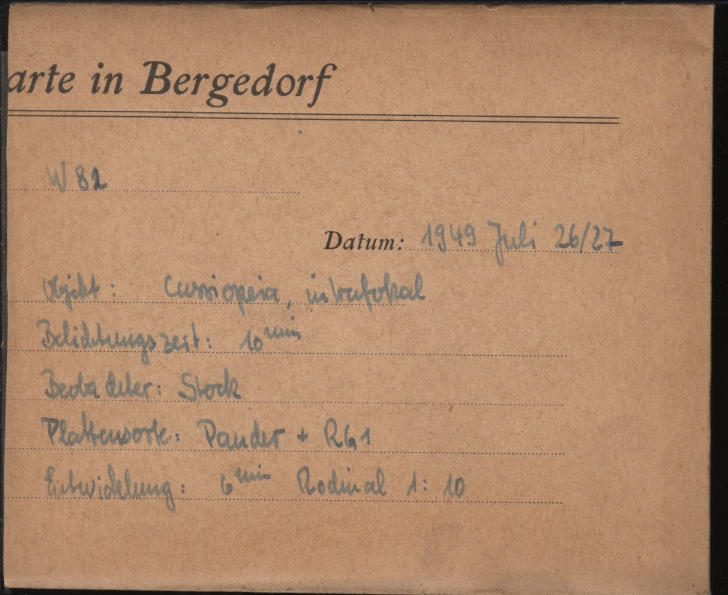 arte in Bergedorf
W 82
Datum: 1949 Juli 26/27
Objekt: Cassiopeia, intrafokal
Belichtungszeit: 10 min
Beobachter: Stock
Plattensorte: Pander + RG1
Entwicklung: 6 min Rodinal 1:10